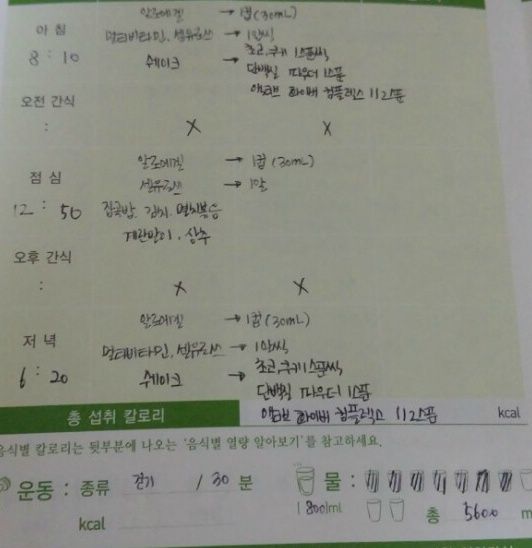 알로에겔 → 1컵 (30mL)
아 침 멀티비타민, 셀유로스 → 1알씩
8 : 10 쉐이크 → 초코, 쿠키 1스푼씩
단백질 파우더 1스푼
액티브 화이버 컴플렉스 1/2스푼
오전 간식
: X X
알로에겔 → 1컵 (30mL)
점 심 셀유로스 → 1알
12 : 50 잡곡밥, 김치, 멸치볶음
계란말이, 상추
오후 간식
: X X
알로에겔 → 1컵 (30mL)
저 녁 멀티비타민, 셀유로스 → 1알씩
6 : 20 쉐이크 → 초코, 쿠키 1스푼씩
단백질 파우더 1스푼
총 섭취 칼로리 액티브 화이버 컴플렉스 1/2스푼 kcal
음식별 칼로리는 뒷부분에 나오는 '음식별 열량 알아보기'를 참고하세요.
운동 : 종류 걷기 / 30 분 물 :
kcal 1 800ml 총 5600 m